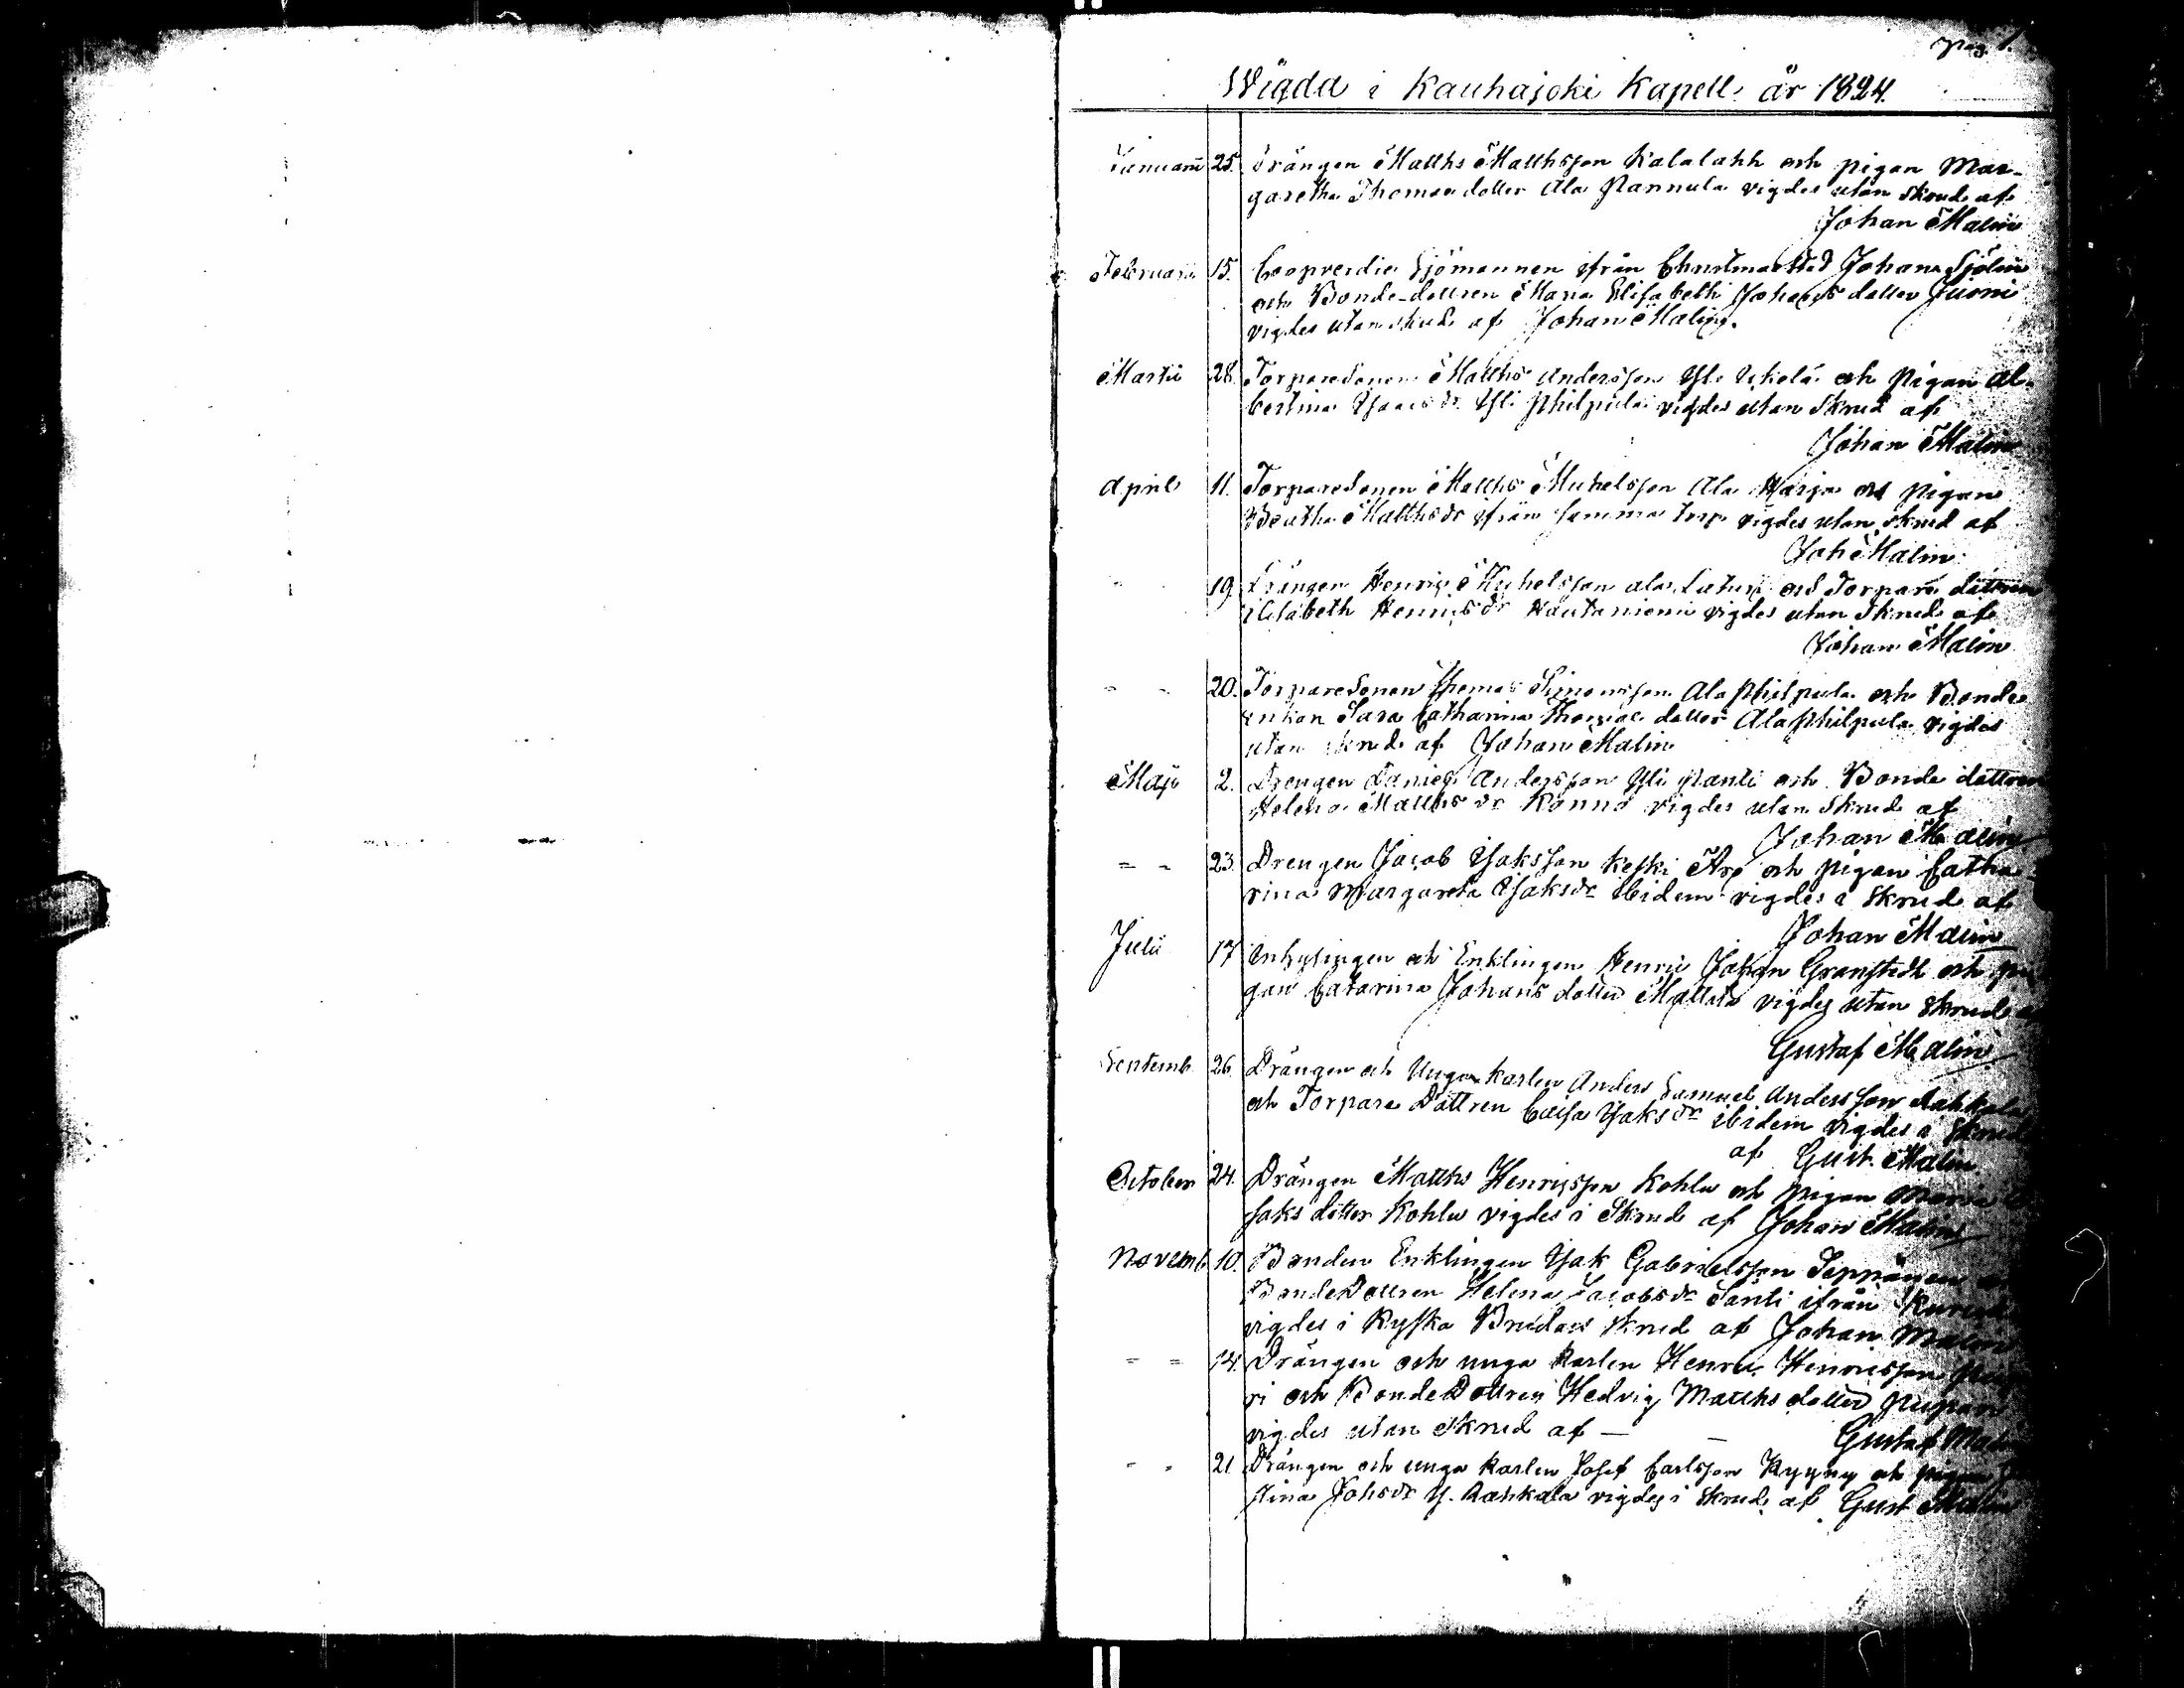 pag. 1.
Wigda i Kauhajoki Kapell år 1824.
Januarii 25. Drängen Matths Matthsson Kalalahti och pigan Mar-
garetha Thomae dotter Ala Pannula vigdes utan skrud af
Johan Malin
Februarii 15. Coopverdie Sjömannen ifrån Christinaestad Johan Sjölin
och Bonde-dottren Maria Elisabeth Johans dotter Juoni
vigdes utan skrud af Johan Malin.
Martii 28. Torparesonen Matths Andersson Yli och Pigan Al-
bertina Isaacs dr Yli Philpula vigdes utan Skrud af
Johan Malin
April 11. Torparesonen Matths Michelsson Ala Harja och Pigan
Beatha Matths dr ifrån samma torp vigdes utan skrud af
Joh Malin
19. Drängen Henric Michelsson ala och Torpare dottren
Elisabeth Henrics dr Hautaniemi vigdes utan Skrud af
Johan Malin
- - 20. Torparesonen Thomas Simonsson Ala Philpula och Bonde
enkan Sara Catharina Thomae dotter Ala Philpula vigdes
utan skrud af Johan Malin
Maji 2. Drengen Daniel Andersson Yli Panti och Bonde dottren
Helena Matths dr Konno vigdes utan Skrud af
Johan Malin
= - 23. Drengen Jacob Isaksson Keski Äyö och pigan Catha-
rina Margareta Isaksdr ibidem vigdes i Skrud af
Johan Malin
Julii 17 Inhysingen och Enklingen Henric Johan Granstedt och pi
gan Catarina Johans dotter Mattila vigdes utan Skrud
Gustaf Malin
Septemb. 26. Drängen och Unga karlen Anders Samuel Andersson Aahkala
och Torpare Dottren Caisa Isaks dr ibidem vigdes i Skrud
af Gust. Malin
October 24. Drängen Matths Henricsson Kohlu och pigan Maria
saks dotter Kohlu vigdes i Skrud af Johan Malin
Novemb. 10. Bonden Enklingen Isak Gabrielsson Seppänen
BondeDottren Helena Jacobs dr Santi ifrån
vigdes i Ryska Brudens skrud af Johan Malin
= = 14. Drängen och unga karlen Henric Henricsson
ri och BondeDottren Hedvig Matths dotter
vigdes utan Skrud af — — Gustaf Malin
- - 21 Drängen och unga karlen Josef Carlsson Kyyny och pigan
stina Johsdr Y. Aahkala vigdes i Skrud af Gust Malin